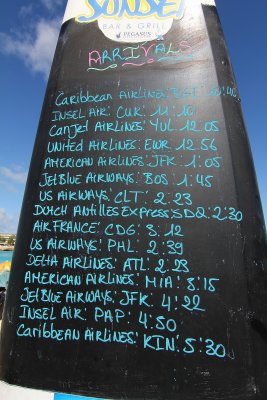 SUNSET
BAR & GRILL
PEGASUS
ARRIVALS
Caribbean Airlines:
Insel Air: CUR: 11:10
Canjet Airlines: YUL: 12:05
United Airlines: EWR: 12:56
American Airlines: JFK: 1:05
JetBlue Airways: BOS: 1:45
US Airways: CLT: 2:23
Dutch Antilles Express: SDQ: 2:30
Air France: CDG: 3:12
US Airways: PHL: 2:39
Delta Airlines: ATL: 2:23
American Airlines: MIA: 3:15
JetBlue Airways: JFK: 4:22
Insel Air: PAP: 4:50
Caribbean Airlines: KIN: 5:30